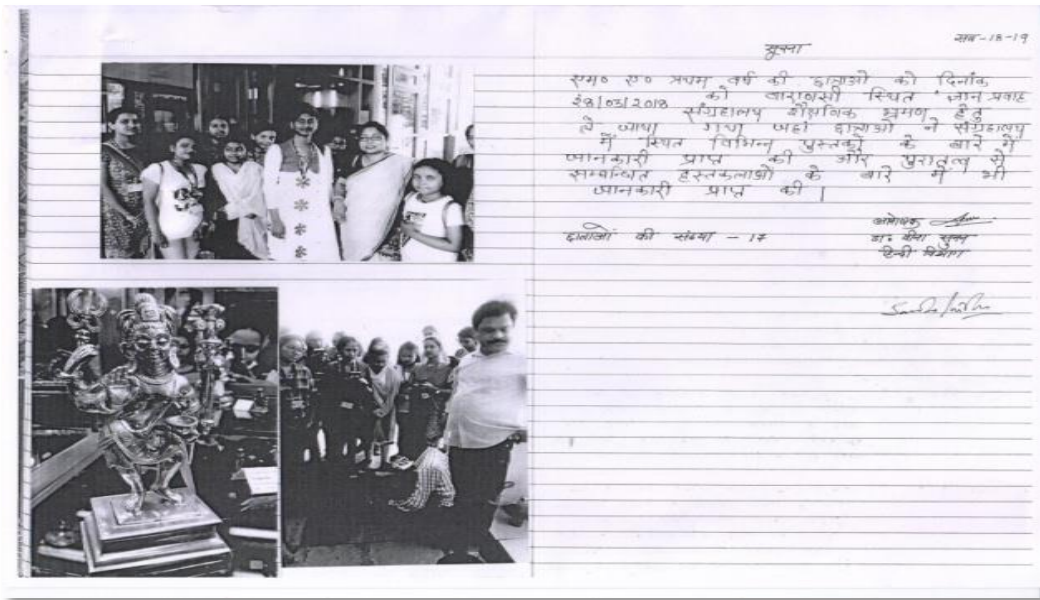 सूचना
सत्र-18-19
एम० ए० प्रथम वर्ष की छात्राओं को दिनांक
28/03/2018 को वाराणसी स्थित ज्ञान प्रवाह
संग्रहालय शैक्षणिक भ्रमण हेतु
ले जाया गया जहां छात्राओं ने संग्रहालय
में स्थित विभिन्न पुस्तकों के बारे में
जानकारी प्राप्त की और पुरातत्व से
सम्बन्धित हस्तकलाओं के बारे में भी
जानकारी प्राप्त की |
छात्राओं की संख्या - 17
डा०
हिन्दी विभाग